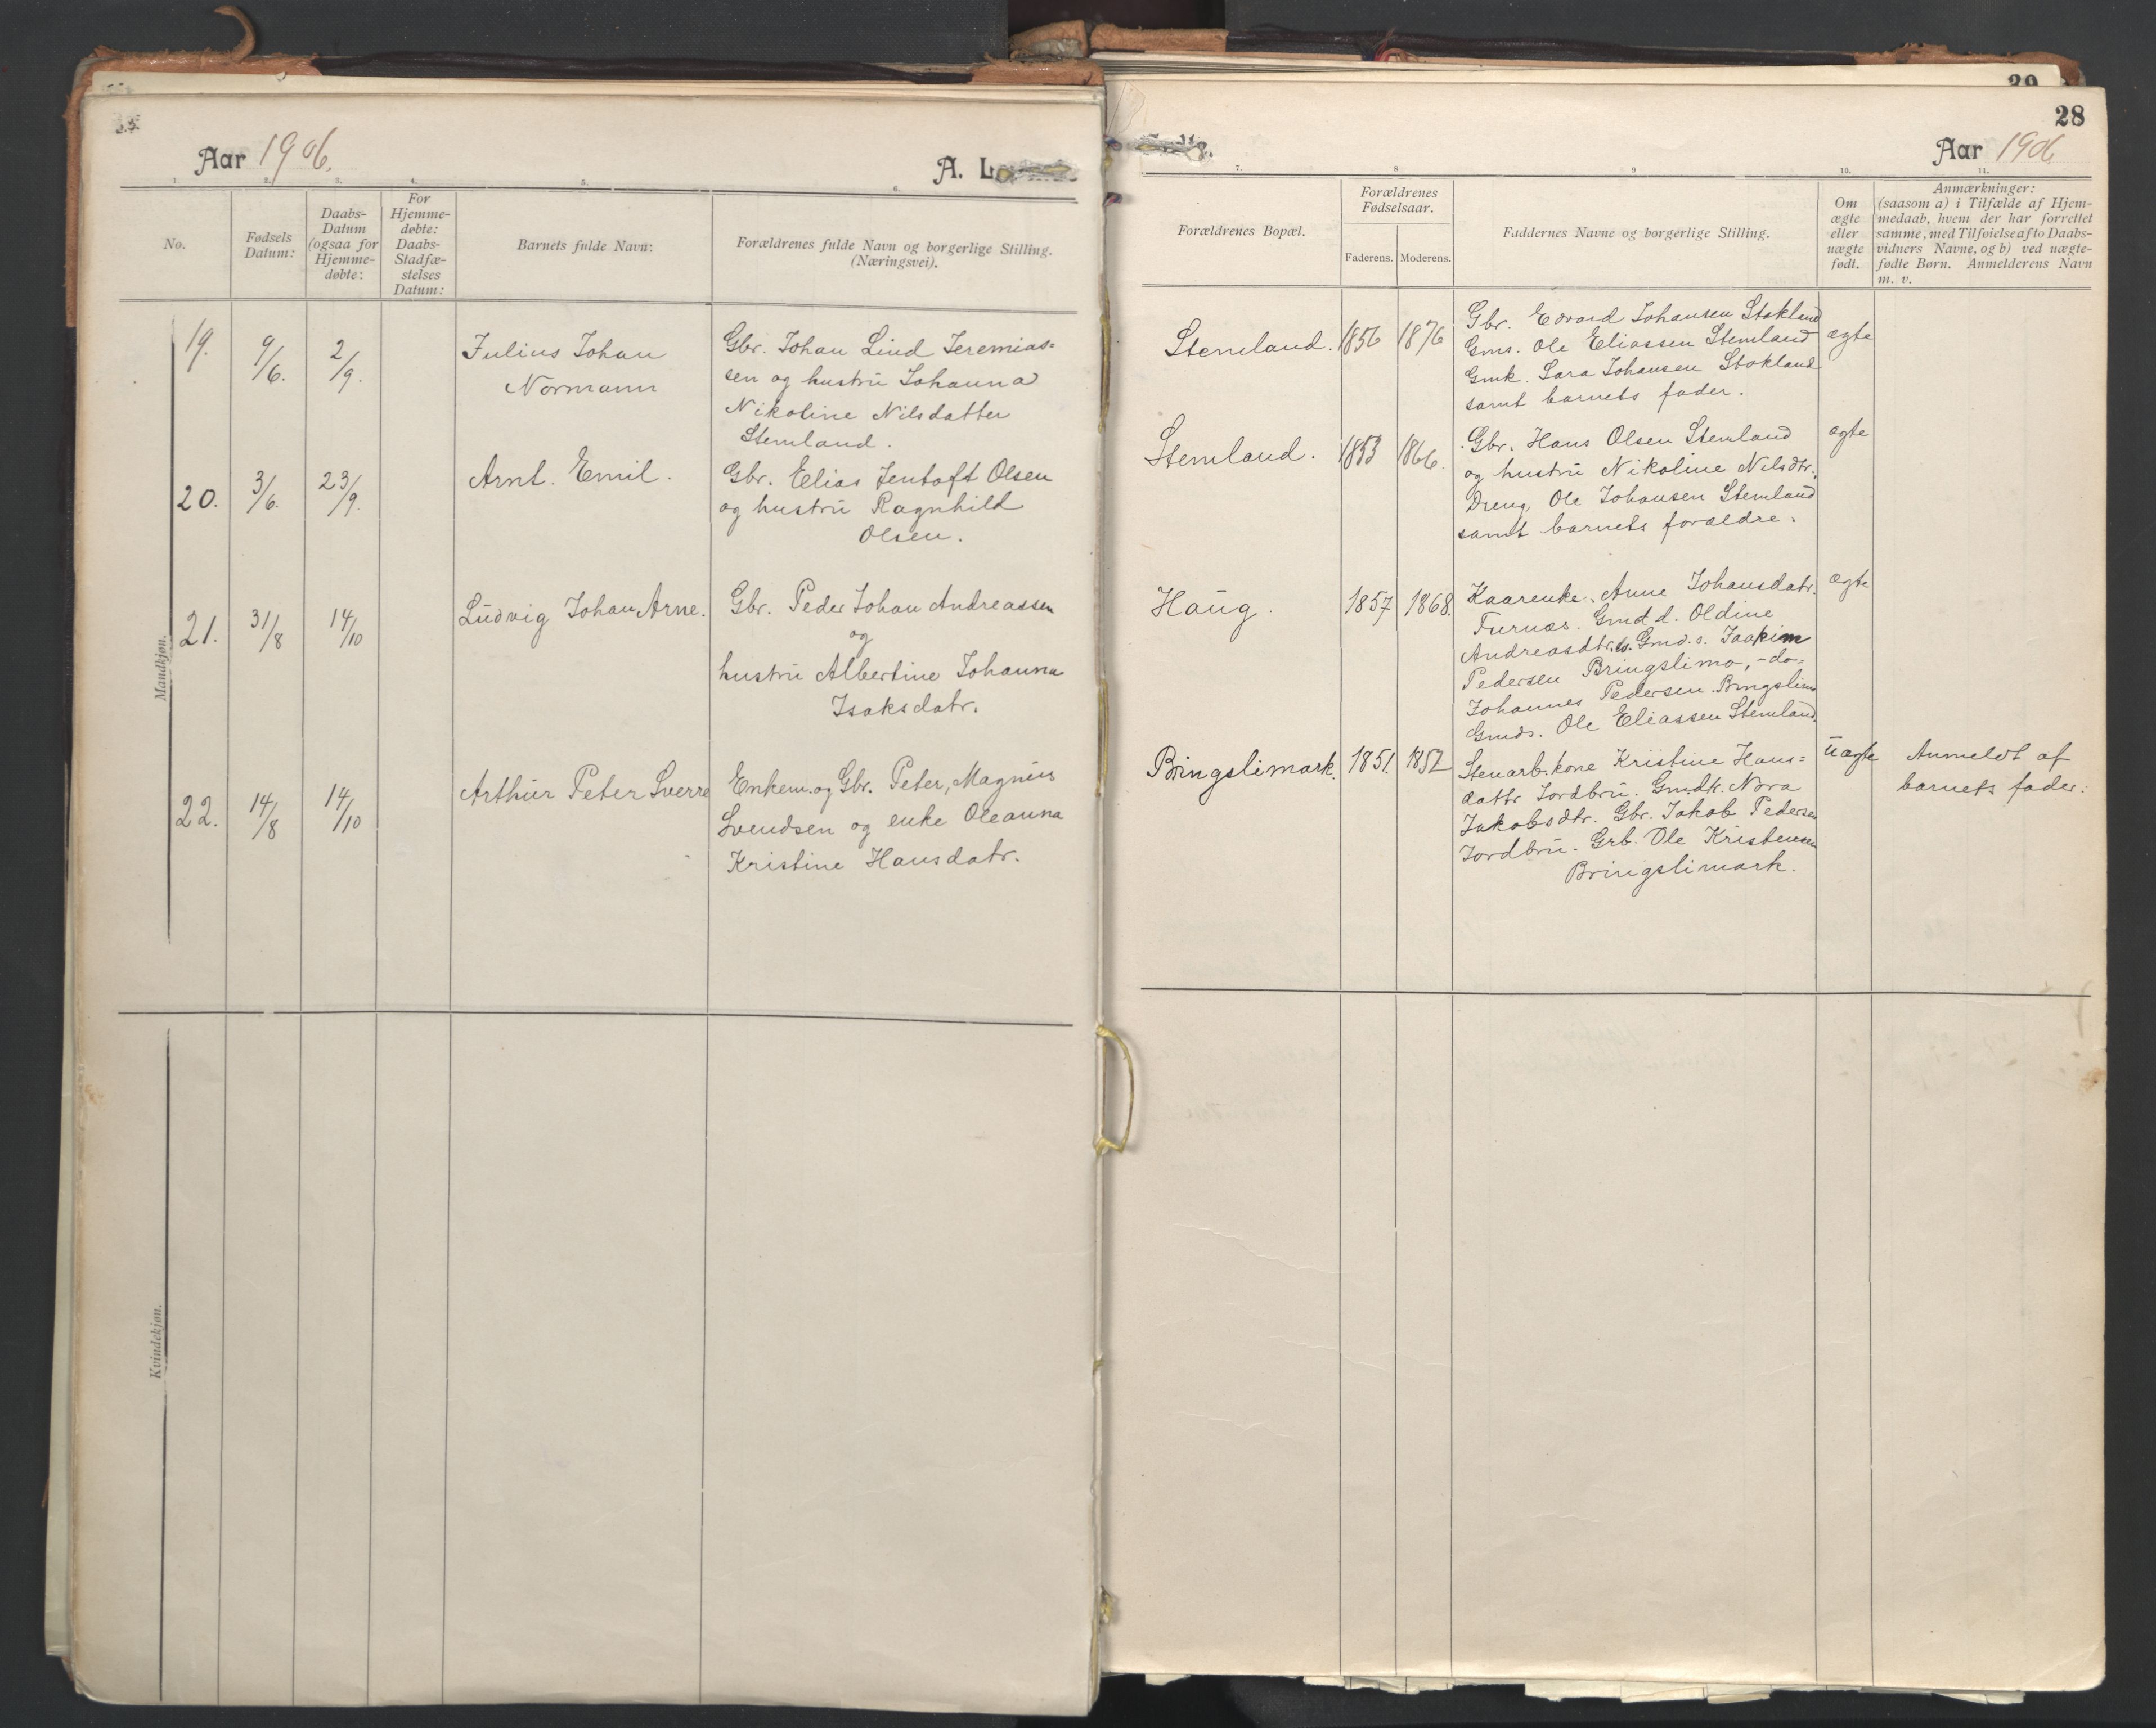 Aar 1906.
A. L
1. 2. 3. 4. 5. 6.
No.
Fødsels
Datum:
Daabs-
Datum
(ogsaa for
Hjemme-
døbte:
For
Hjemme-
døbte:
Daabs-
Stadfæ-
stelses
Datum:
Barnets fulde Navn:
Forældrenes fulde Navn og borgerlige Stilling.
(Næringsvei).
Mandkjøn.
19. 9/6. 2/9. Julius Johan
Normann
Gbr. Johan Lind Jeremias=
sen og hustru Johanna
Nikoline Nilsdatter
Stemland.
20. 3/6. 23/9. Arnt. Emil.
Gbr. Elias Jentoft Olsen
og hustru Ragnhild
Olsen.
21. 31/8 14/10 Ludvig Johan Arne.
Gbr. Peder Johan Andreassen
og
hustru Albertine Johanna
Isaksdatr.
22. 14/8 14/10 Arthur Peter Sverre
Enkem. og Gbr. Peter, Magnus
Svendsen og enke Oleanna
Kristine Hansdatr.
Kvindekjøn.
29
28
Aar 1906
7. 8 9 10. 11.
Forældrenes Bopæl.
Forældrenes
Fødselsaar.
Faderens. Moderens.
Faddernes Navne og borgerlige Stilling.
Om
ægte
eller
uægte
født.
Anmærkninger:
(saasom a) i Tilfælde af Hjem-
medaab, hvem der har forrettet
samme, med Tilføielse af to Daabs-
vidners Navne, og b) ved uægte-
fødte Børn. Anmelderens Navn
m. v.
Stemland. 1856 1876
Gbr. Edvard Johansen Stokland
Gms. Ole Eliassen Stemland
Gmk. Sara Johansen Stokland
samt barnets fader.
ægte
Stemland. 1853 1866.
Gbr. Hans Olsen Stemland
og hustru Nikoline Nilsdtr.,
Dreng, Ole Johansen Stemland
samt barnets forældre.
ægte
Haug. 1857 1868.
Kaarenke. Anne Johansdatr.
Furnes. Gmd d. Oldine
Andreasdtr. Gmd. s. Joakim
Pedersen Bringslimo, -do-
Johannes Pedersen Bringslimo
Gmds. Ole Eliassen Stemland.
ægte
Bringslimark. 1851. 1852
Stenarb. kone Kristine Hans=
dattr Jordbru. Gmdtr. Nora
Jakobsdtr. Gbr. Jakob Pedersen
Jordbru. Grb. Ole Kristensen
Bringslimark.
Uægte
Anmeldt af
barnets fader.